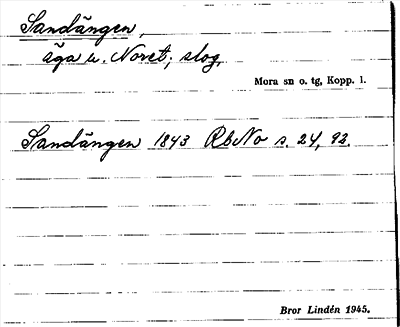 Sandängen,
äga u. Noret; slog.
Mora sn o. tg, Kopp. l.
Sandängen 1843 RbNo s. 24, 92.
Bror Lindén 1945.